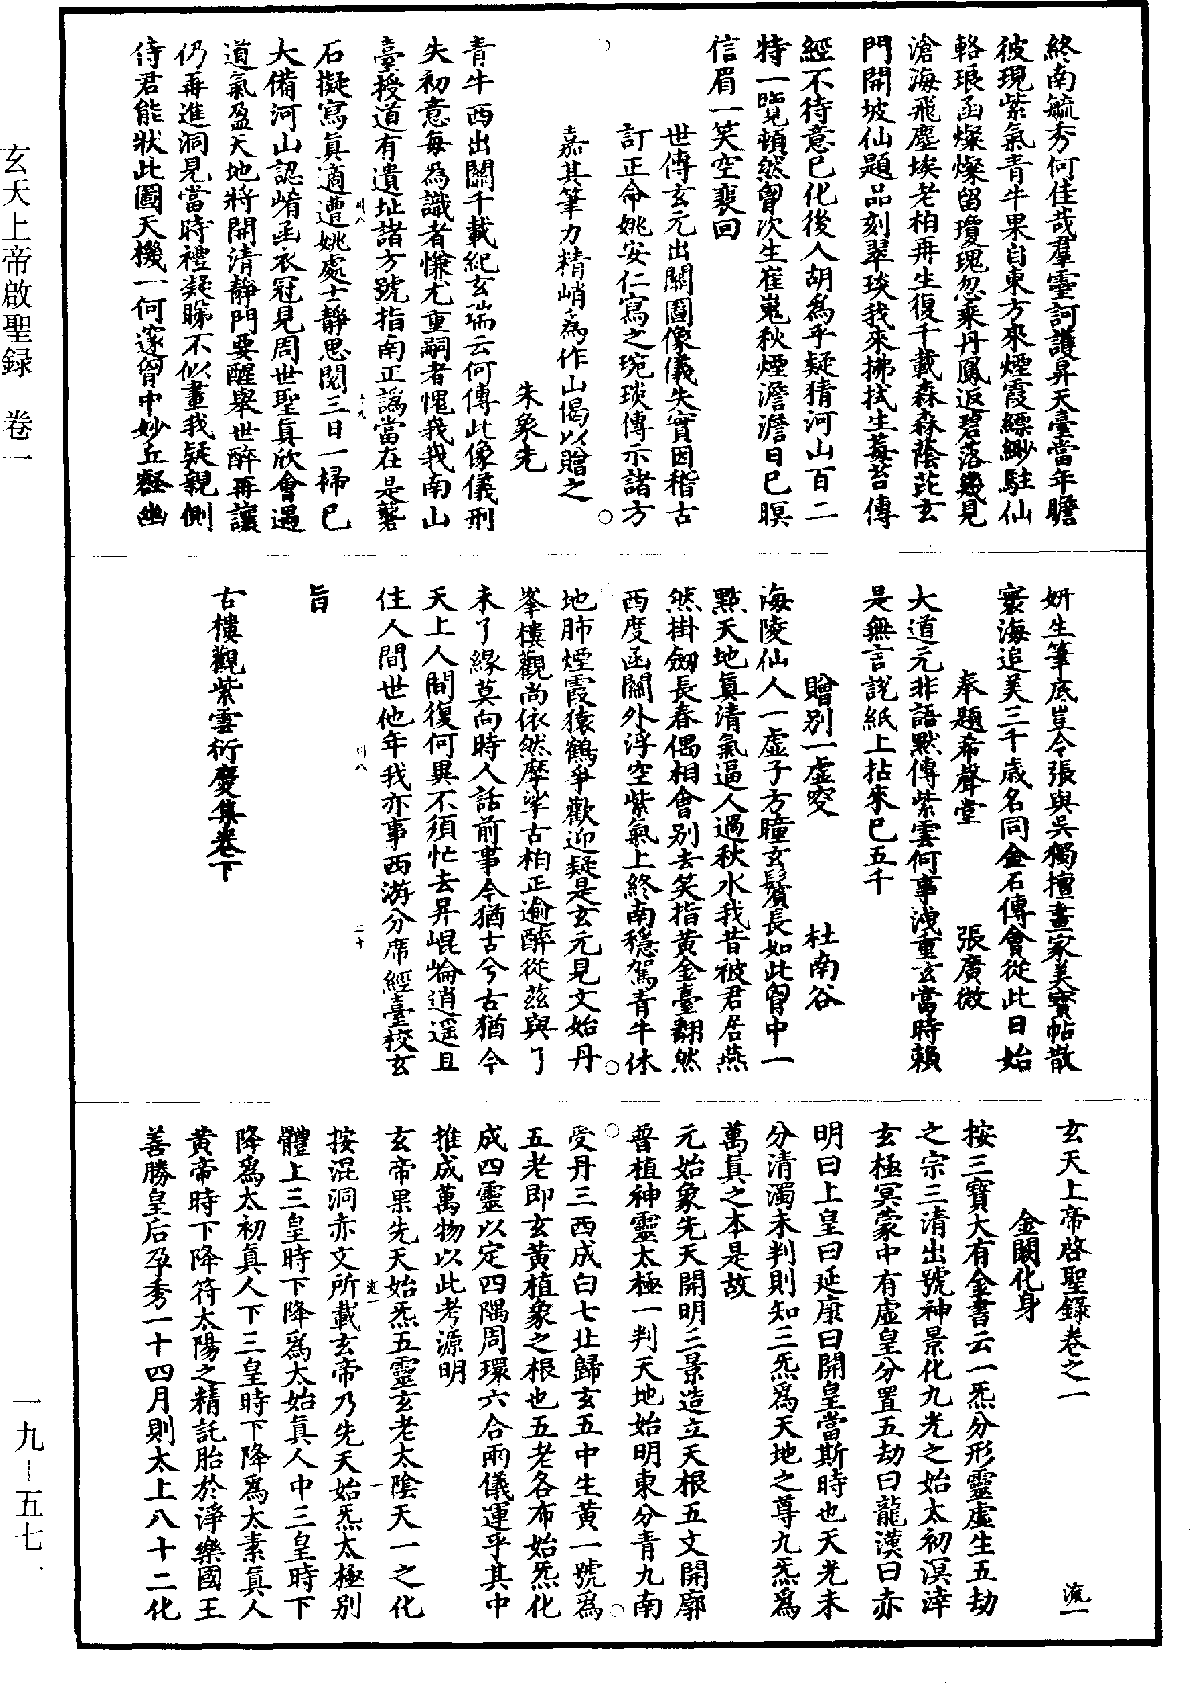 終南毓秀何佳哉羣靈訶護昇天臺當年瞻
彼現紫氣青牛果自東方來煙霞縹緲駐仙
輅琅函燦燦留瓊瑰忽乘丹鳳返碧落幾見
滄海飛塵埃老柏再生復千載森森蔭茈玄
門開坡仙題品刻翠琰我來拂拭生莓苔傳
經不待意已化後人胡為乎疑猜河山百二
特一覽頓然胷次生崔嵬秋煙澹澹日已暝
信眉一笑空裴回
世傳玄元出關圖像儀失實因稽古
訂正命姚安仁寫之琬琰傳示諸方
嘉其筆力精峭為作山偈以贈之
朱象先
青牛西出關千載紀玄端云何傳此像儀刑
失初意每為識者慊尤重嗣者愧我我南山
臺授道有遺址諸方號指南正譌當在是礱
石擬寫真適遭姚處士靜思閱三日一掃已
大備河山認崤函衣冠見周世聖真欣會遇
道氣盈天地將開清靜門要醒舉世醉再讓
仍再進洞見當時禮凝睇不似畫我疑親側
侍君能狀此圖天機一何邃胷中妙丘壑幽
妍生筆底豈令張與吳獨擅畫家美寶帖散
寰海追美三千歲名同金石傳會從此日始
奉題希聲堂　張廣微
大道元非語默傳紫雲何事洩重玄當時賴
是無言說紙上拈來已五千
贈別一虛叜　杜南谷
海陵仙人一虛子方瞳玄鬢長如此胷中一
點天地真清氣逼人過秋水我昔被君居燕
然掛劒長春偶相會別去笑指黃金臺翻然
西度函關外浮空紫氣上終南穩駕青牛休
地肺煙霞猿鶴爭歡迎疑是玄元見文始丹
峯樓觀尚依然摩挲古柏正逾醉從茲與了
未了緣莫向時人話前事今猶古兮古猶今
天上人間復何異不須忙去昇崐崘逍遥且
住人間世他年我亦事西游分席經臺校玄
旨
古樓觀紫雲衍慶集卷下
玄天上帝啓聖錄卷之一　流一
金闕化身
按三寶大有金書云一炁分形靈虛生五劫
之宗三清出號神景化九光之始太初溟涬
玄極冥蒙中有虛皇分置五劫曰龍漢曰赤
明曰上皇曰延康曰開皇當斯時也天光未
分清濁未判則知三炁為天地之尊九炁為
萬真之本是故
元始象先天開明三景造立天根五文開廓
普植神靈太極一判天地始明東分青九南
受丹三西成白七北歸玄五中生黃一號為
五老即玄黃植象之根也五老各布始炁化
成四靈以定四隅周環六合兩儀運乎其中
推成萬物以此考源明
玄帝果先天始炁五靈玄老太陰天一之化
按混洞赤文所載玄帝乃先天始炁太極別
體上三皇時下降為太始真人中三皇時下
降為太初真人下三皇時下降為太素真人
黃帝時下降符太陽之精託胎於淨樂國王
善勝皇后孕秀一十四月則太上八十二化
玄天上帝啟聖録　卷一
一九－五七